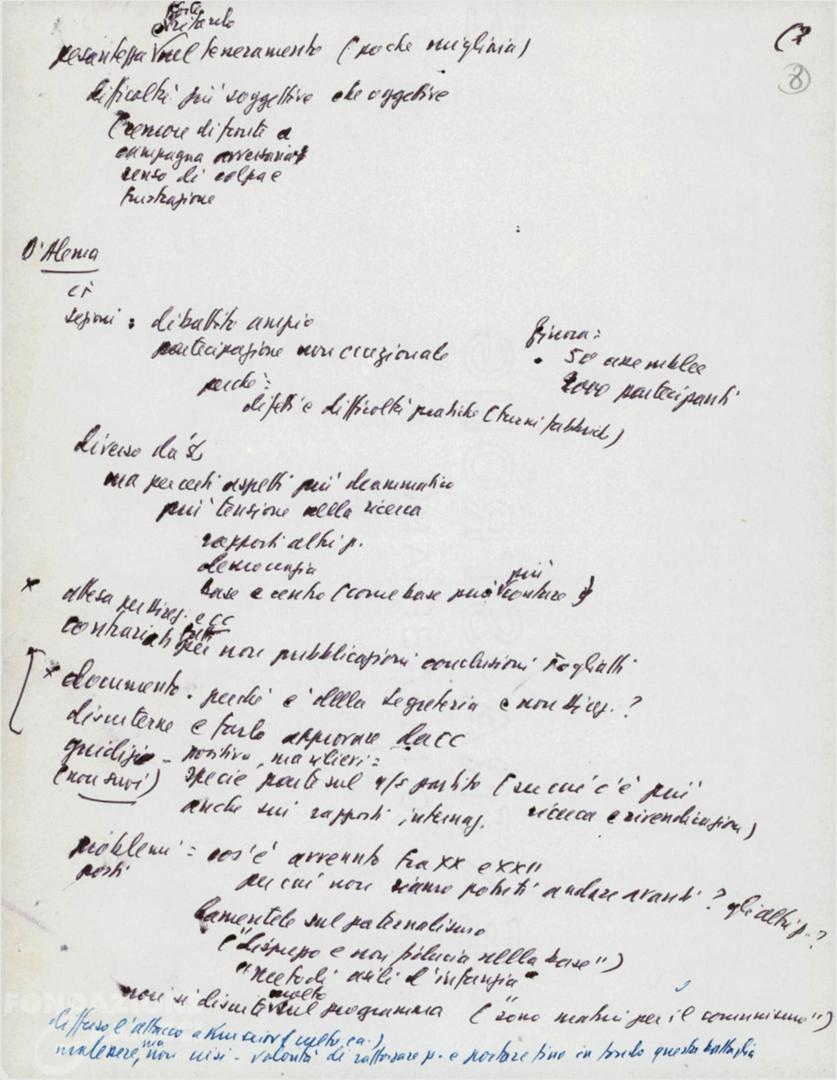 forte
ritardo
(7
8
pesantezza nel tesseramento (poche migliaia)
difficoltà più soggettive che oggettive
timore di fronte a
campagna avversaria
senso di colpa e
frustrazione
D'Alema
CF
sezioni: dibattito ampio
partecipazione non eccezionale
perché:
difetti e difficoltà pratiche (turni fabbrich)
finora:
50 assemblee
2000 partecipanti
diverso da '56
ma per certi aspetti più drammatico
più tensione nella ricerca
rapporti altri p.
democrazia
base e centro (come base può più contare)
x attesa per Direz. e CC
contrariati tutti per non pubblicazioni conclusioni Togliatti
x documento. perché è della Segreteria e non Direz.?
discuterne e farlo approvare da CC
giudizio - positivo, ma rilievi:
(non suoi) specie parte sul partito (su cui c'è più
anche sui rapporti internaz. ricerca e rivendicazioni)
problemi: cos'è avvenuto fra XX e XXII
posti
per cui non siamo potuti andare avanti? gli altri p.?
lamentele sul paternalismo
("disprezzo e non fiducia nella base")
"metodi asili d'infanzia"
non si discute molto sul programma ("sono maturi per il comunismo")
FONDAZIONE
diffuso l'attacco a
malessere, ma non crisi - volontà di rafforzare p. e portare fino in fondo questa battaglia